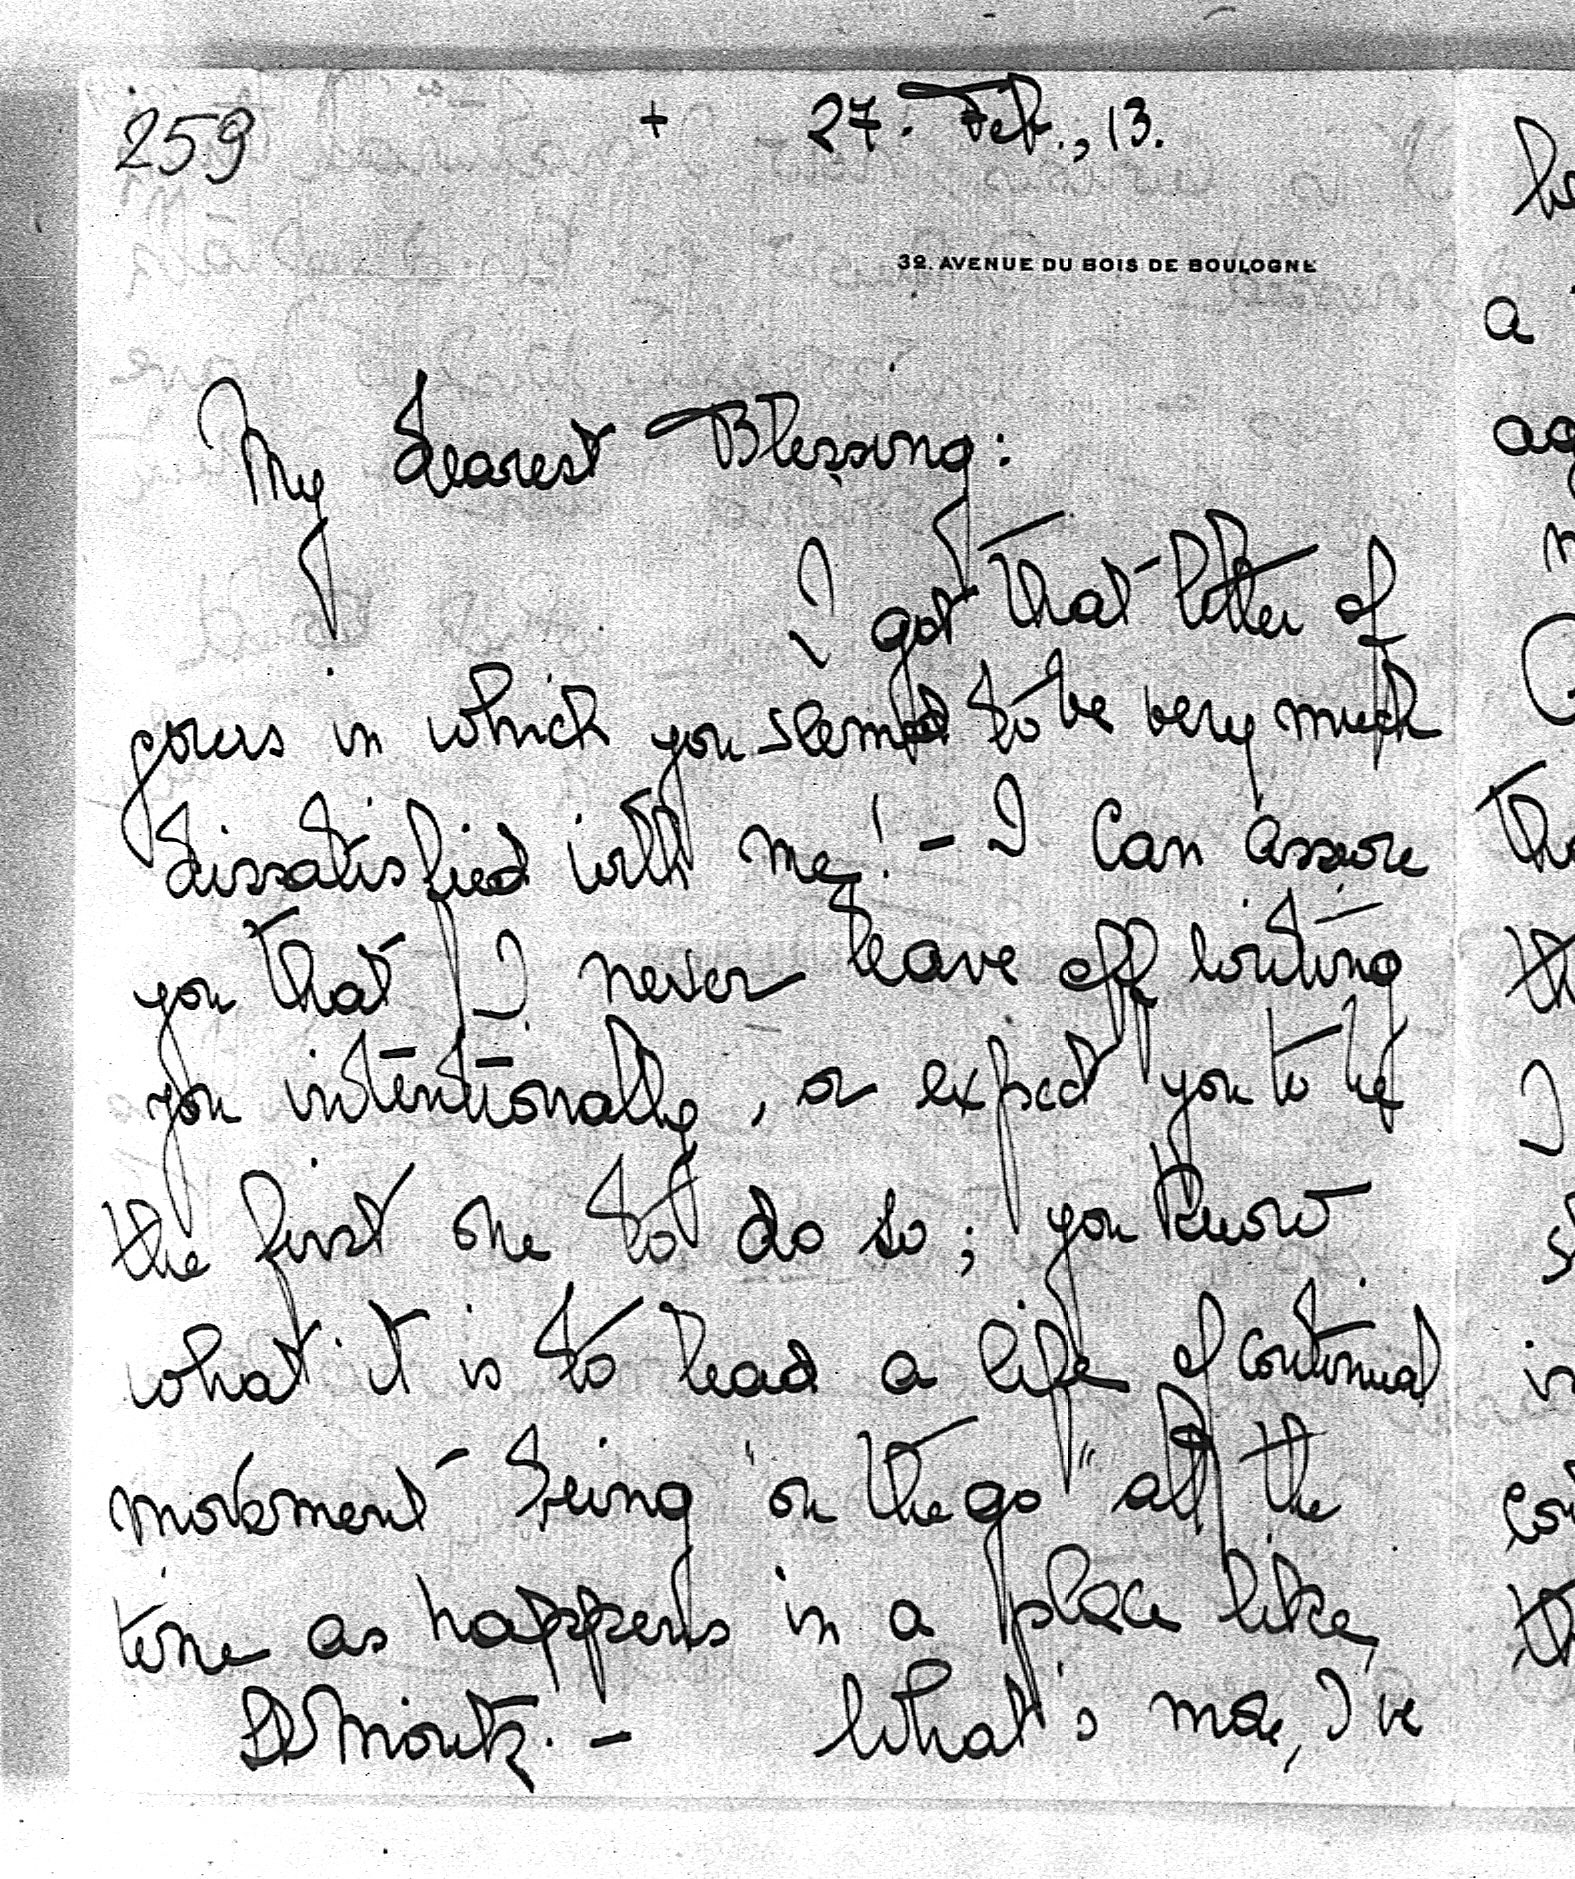 259 + 27. Feb., 13.
32. AVENUE DU BOIS DE BOULOGNE
My dearest Blessing:
I got that letter of
yours in which you seemed to be very much
dissatisfied with me! – I can assure
you that I never leave off writing
you intentionally, or expect you to be
the first one to do so; you know
what it is to lead a life of continual
movement being "on the go" all the
time as happens in a place like
St Moritz. – What's more, I've